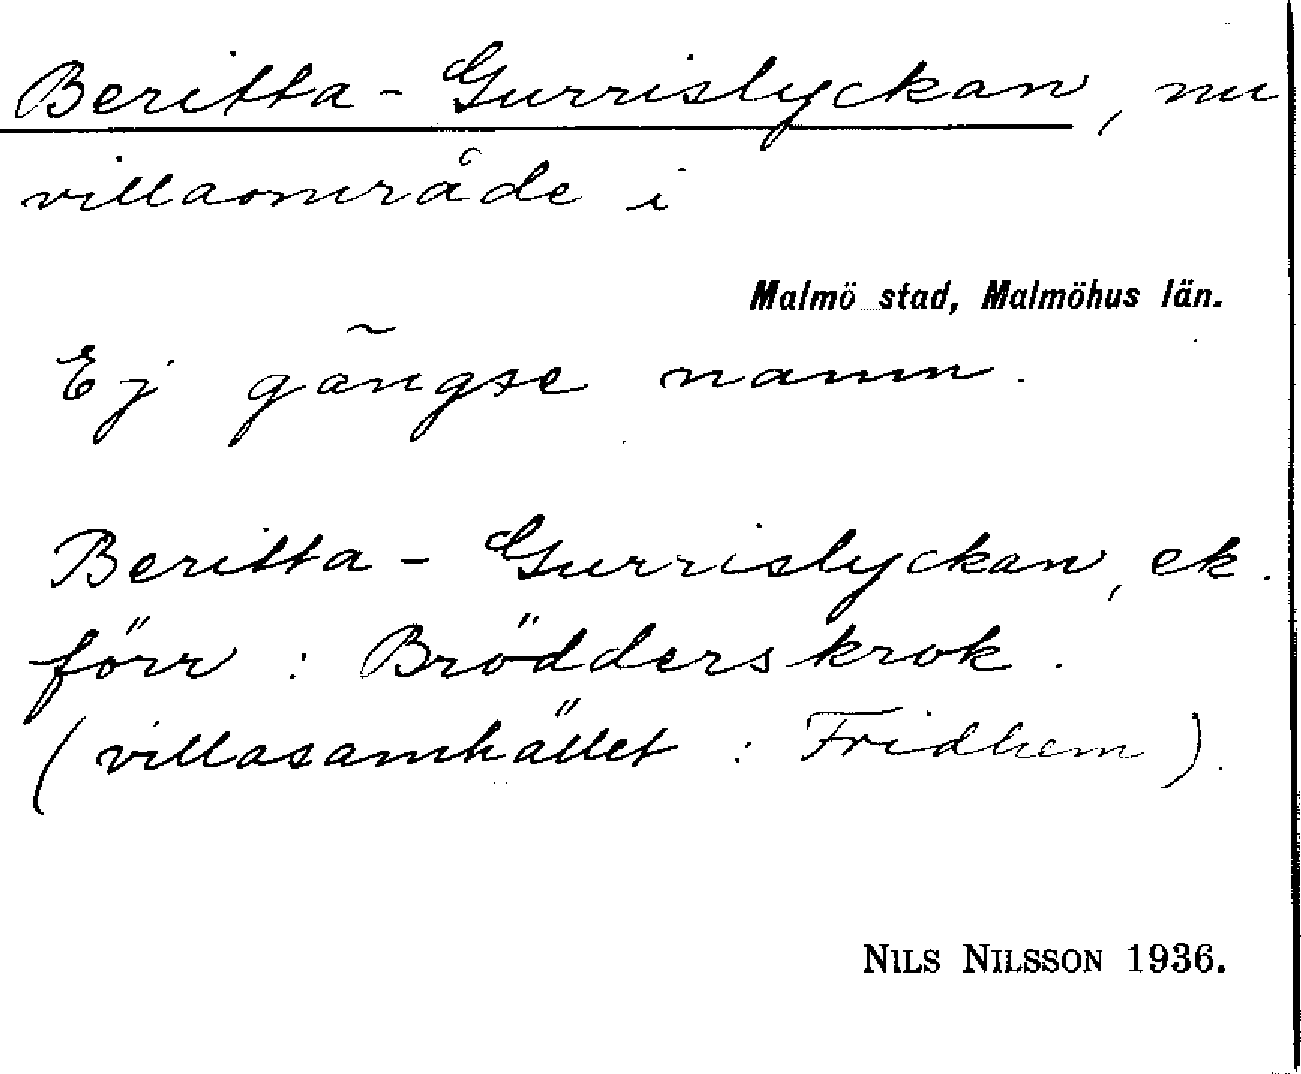 Beritta-Gurrislyckan, nu
villaområde i
Malmö stad, Malmöhus län.
Ej gängse namn.
Beritta-Gurrislyckan, ek.
förr: Brödderskrok.
(villasamhället: Fridhem).
NILS NILSSON 1936.